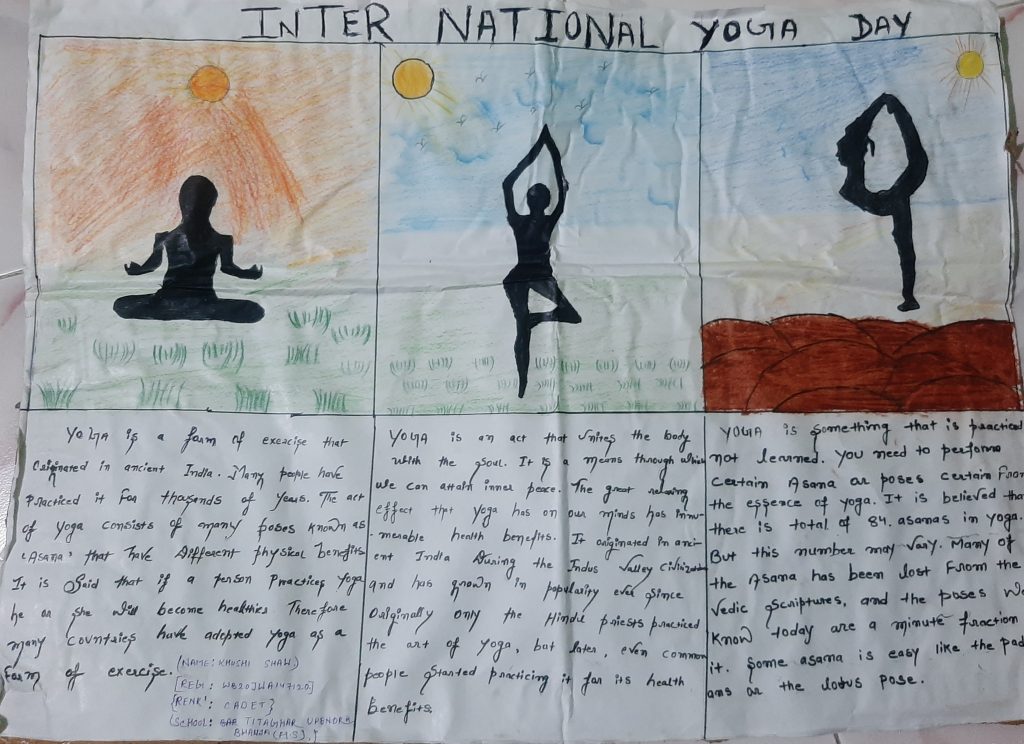 INTER NATIONAL YOGA DAY
YOGA is a form of exercise that
Originated in ancient India. Many people have
Practiced it for thousands of years. The act
of yoga consists of many poses known as
'Asana' that have Different physical benefits
It is Said that if a person Practices yoga
he or she will become healthies Therefore
many countries have adopted yoga as a
form of exercise.
(NAME: KHUSHI SHAW)
[REGI:
{RENK: CADET}
(SCHOOL: TITAGHAR
YOGA is an act that Unites the body
with the Soul. It is a means through which
we can attain inner peace. The great relaxing
effect that yoga has on our minds has innu-
-merable health benefits. It originated in anci-
ent India During the Indus Valley civilization
and has grown in popularity ever since
Originally only the Hindu priests practiced
the art of yoga, but later, even common
people Started practicing it for its health
benefits.
YOGA is something that is practiced
not learned. you need to perform
certain Asana or poses certain From
the essence of yoga. It is believed that
there is total of 84. asamas in yoga.
But this number may vary. Many of
the Asana has been lost From the
Vedic Scriptures, and the poses we
Know today are a minute fraction
it. Some asana is easy like the pad
ans or the lotus pose.